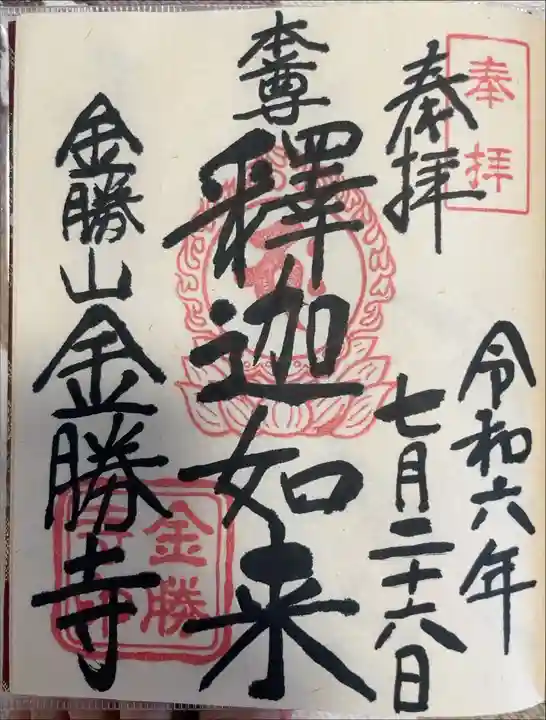 奉拝
奉拝
令和六年
七月二十六日
本尊
釋迦如来
金勝山金勝寺
金勝
寺印